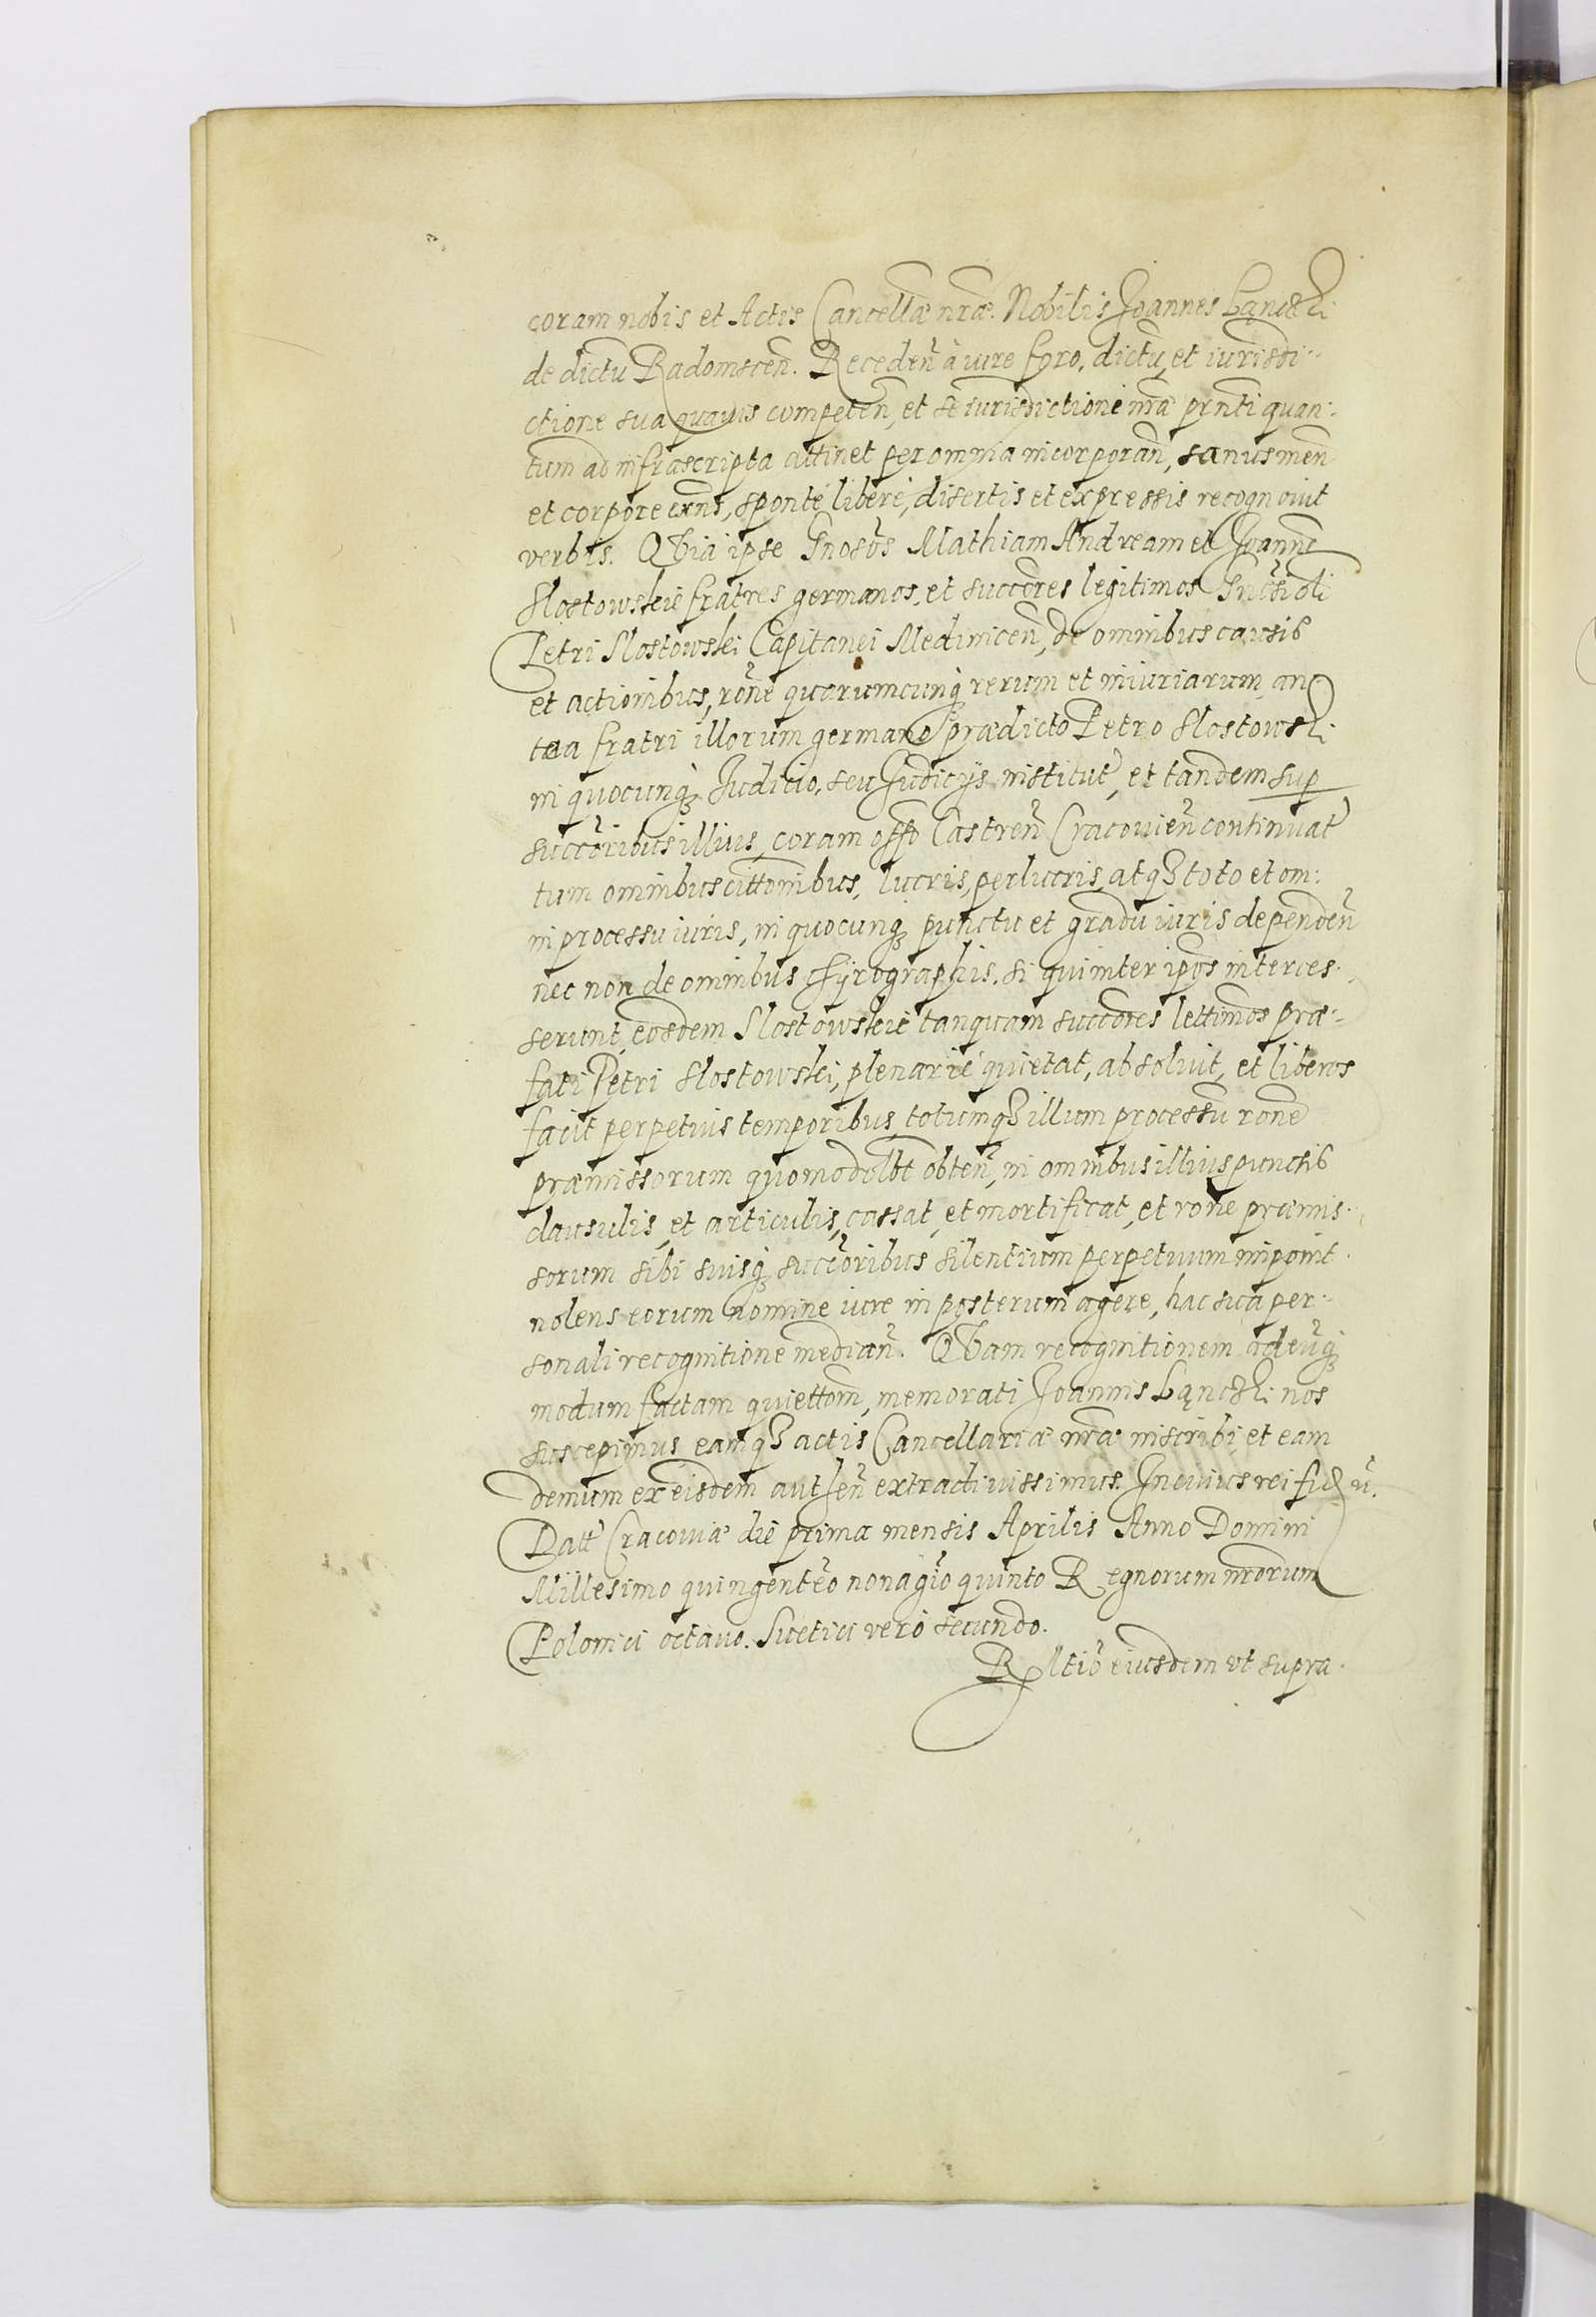 coram nobis et Actis Cancellæ nr̃æ. Nobilis Joannes Łącski
de dictũ Radomscen̄. Receden̄ à iure foro, dictũ, et iurisdi-
ctione sua quauis competen̄, et se iurisdictioni nr̃æ pn̄ti quan:
tum ad infrascripta attinet per omnia incorporan̄, sanus men
et corpore exn̄s, sponte libere, disertis et expressis recognouit
verbis. Quia ipse Gn̄osos Mathiam Andream et Joannē
Slostowskie fratres germanos, et succōres legitimos Gn̄si olī
Petri Slostowski Capitanei Mednicen̄, de omnibus causis
et actionibus, rōne quarumcunq̨ rerum et iniuriarum an
tea fratri illorum germano prædicto Petro Slostowski
in quocunq̨ Iuditio, seu Judicÿs institut̃, et tandem sup
succōribus illius, coram offo Castren̄ Cracouien̄ continuat̃
tum omnibus citt̃onibus, lucris, perlucris, atq̨ toto et om:
ni processu iuris, in quocunq̨ punctu et gradu iuris dependen̄
nec non de omnibus chyrographis, si qui inter ip̄os interces-
serunt, eosdem Slostowskie tanquam succōres lett̃imos præ:
fati Petri Slostowski, plenarie quietat, absoluit, et liberos
facit perpetuis temporibus, totumq̨ illum processũ rōne
præmissorum quomodolb̄t obten̄, in omnibus illius punctis
clausulis, et articulis, cassat, et mortificat, et rōne præmis-
sorum sibi suisq̨ succōribus silentium perpetuum imponit.
nolens eorum nomine iure in posterum agere, hac sua per-
sonali recognitione median̄. Quam recognitionem adeuq̨
modum factam quiett̃om̄, memorati Joannis Łącski nos
suscepimus, eamq̨ actis Cancellariæ nr̃æ inscribi, et eam
demum ex eisdem authen̄ extradi iussimus. In cuius rei fid ũ.
Datt̃ Cracouiæ die prima mensis Aprilis Anno Domini
Millesimo quingentēo nonagīo quinto Regnorum nr̃orum
Polonici octauo. Suetici vero secundo.
Rltiō eiusdem vt supra.